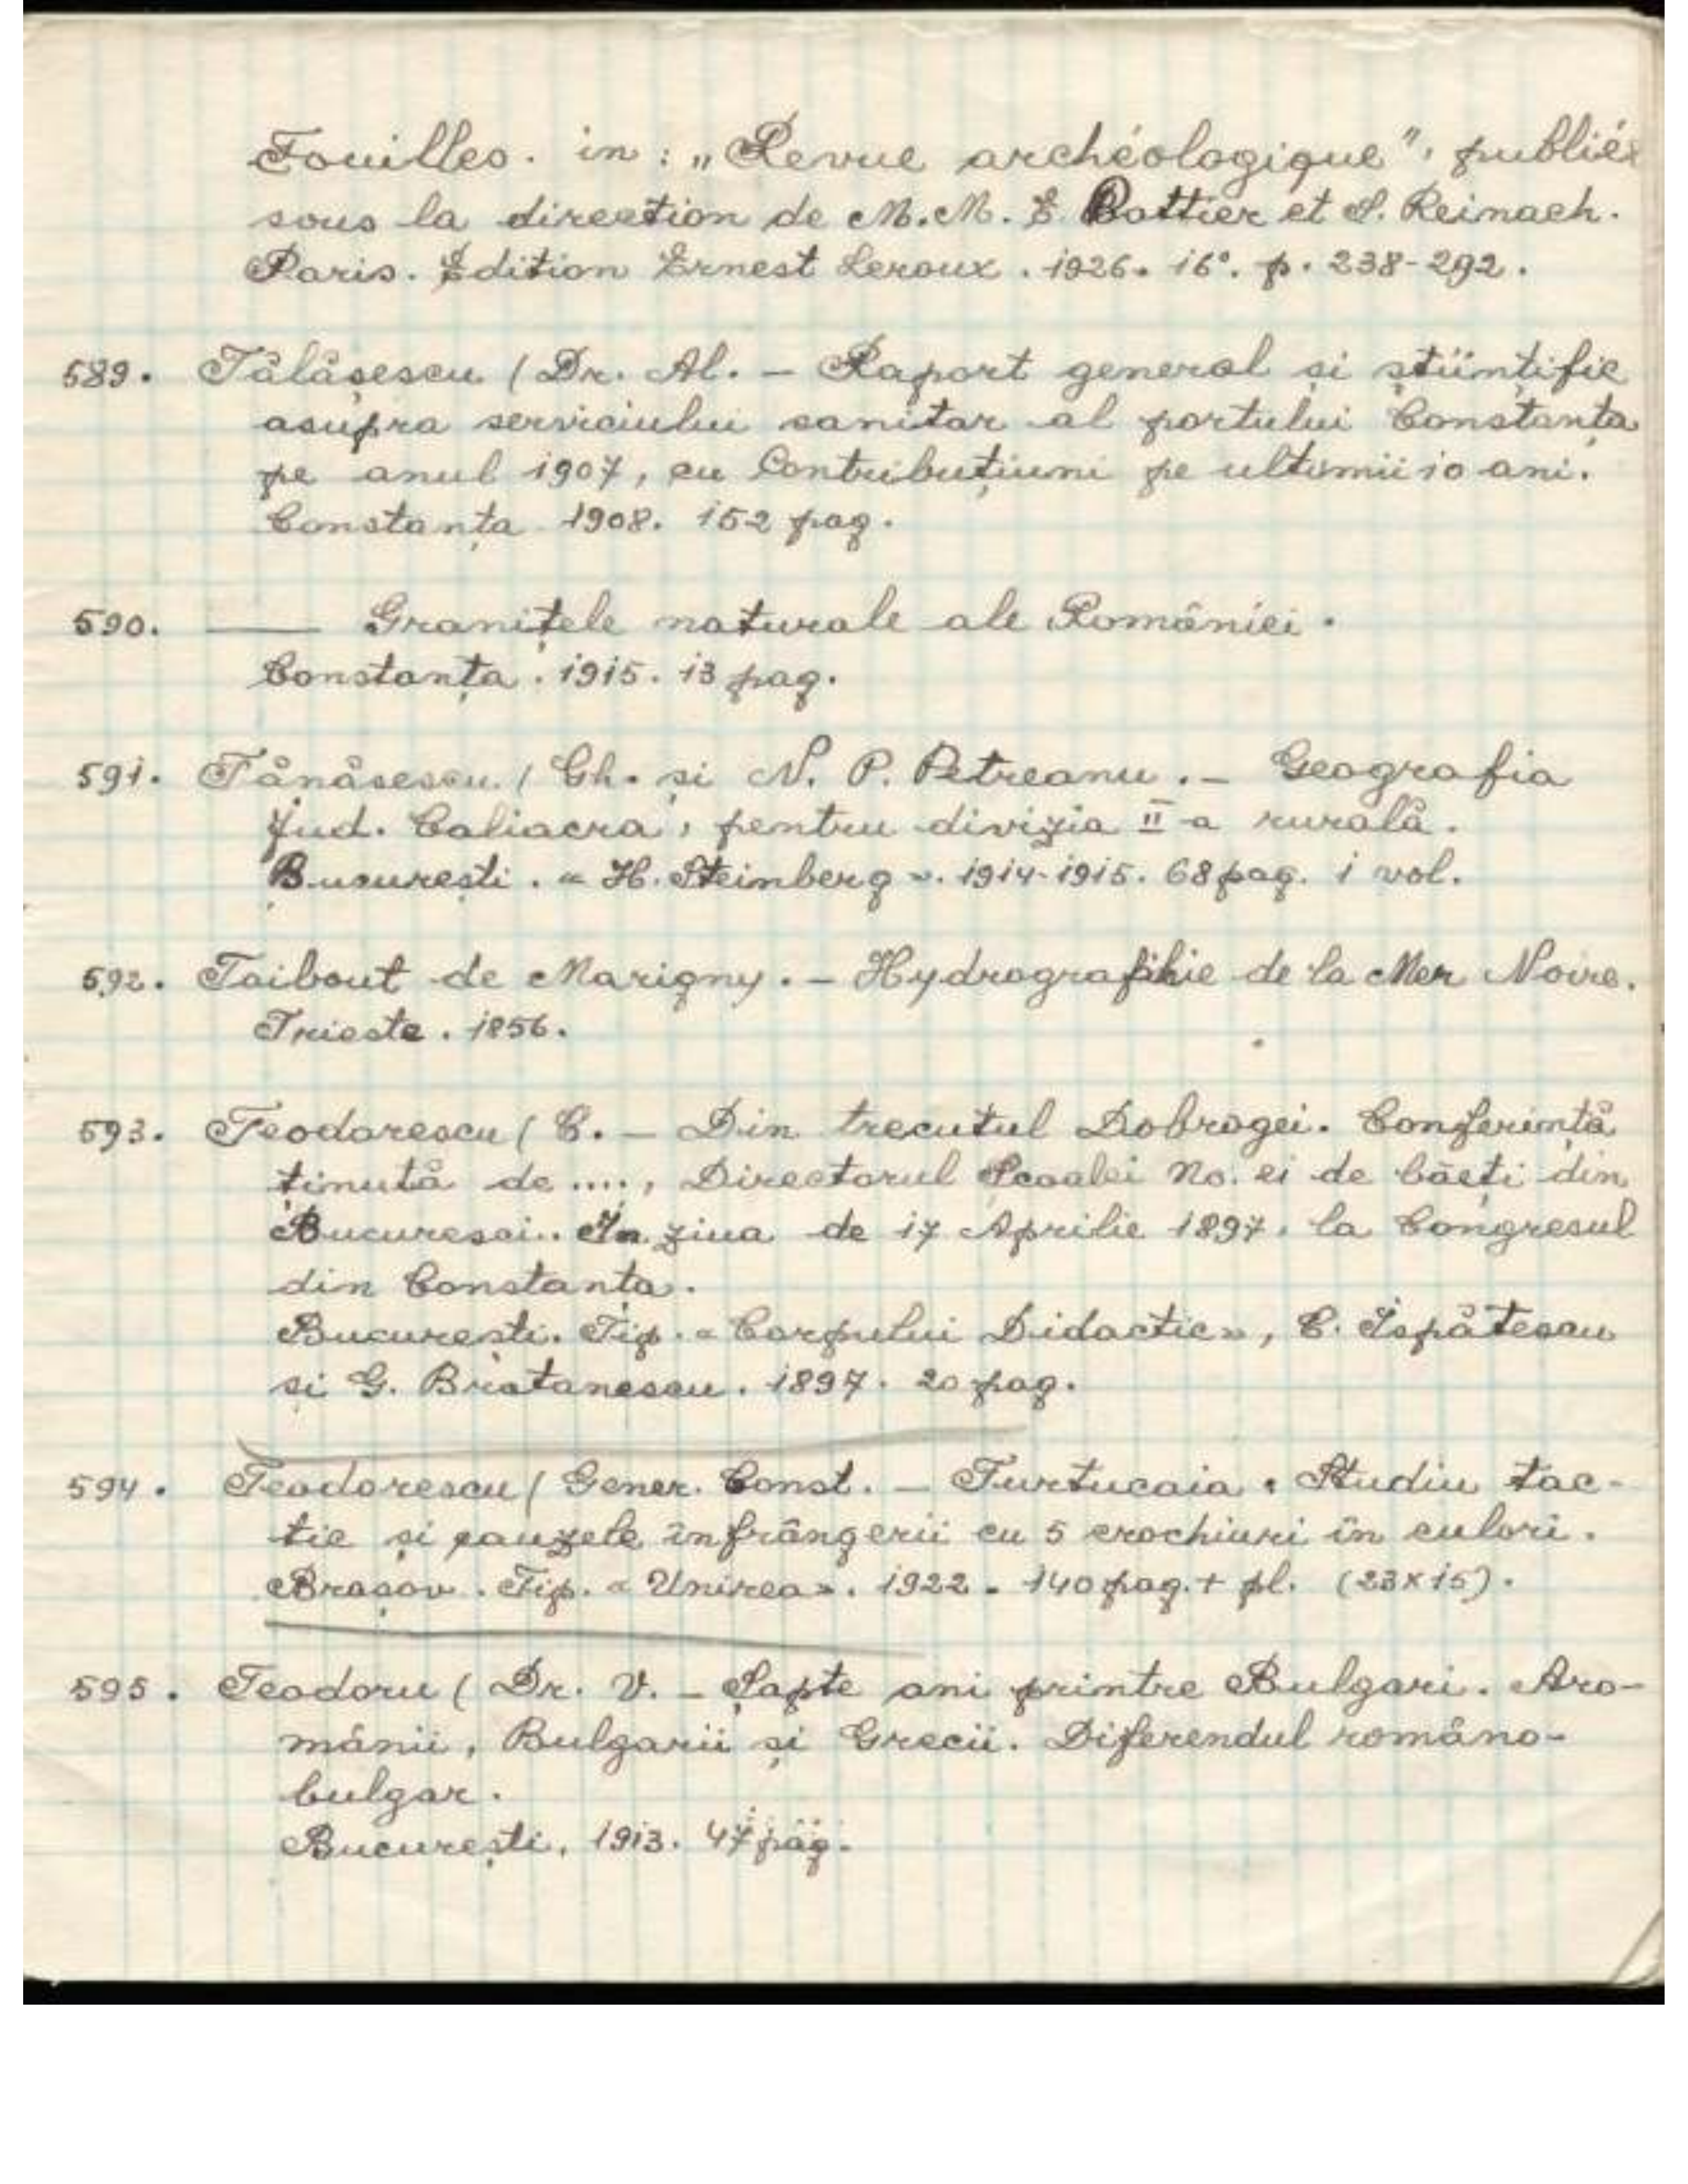 Fouilles. in: „Revue archéologique", publiée
sous la direction de M.M. E. Pottier et S. Reinach.
Paris. Édition Ernest Leroux. 1926. 16°. p. 238-292.
589. Tălășescu (Dr. Al. — Raport general și științific
asupra serviciului sanitar al portului Constanța
pe anul 1907, cu Contribuțiuni pe ultimii 10 ani.
Constanța 1908. 152 pag.
590. —— Granițele naturale ale României.
Constanța. 1915. 13 pag.
591. Tănăsescu (Gh. și N. P. Petreanu. — Geografia
Jud. Caliacra, pentru divizia II-a rurală.
București. « H. Steinberg ». 1914-1915. 68 pag. 1 vol.
592. Taibout de Marigny. — Hydrographie de la Mer Noire.
Trieste. 1856.
593. Teodorescu (C. — Din trecutul Dobrogei. Conferință
ținută de ...., Directorul Școalei No. 21 de băeți din
Bucuresci.. In ziua de 17 Aprilie 1897, la Congresul
din Constanța.
București. Tip. « Corpului Didactic », C. Ispătescu
și G. Bratanescu. 1897. 20 pag.
594. Teodorescu (Gener. Const. — Turtucaia. Studiu tac-
tic și cauzele înfrângerii cu 5 crochiuri în culori.
Brașov. Tip. « Unirea ». 1922. 140 pag. + pl. (23x15).
595. Teodoru (Dr. V. — Șapte ani printre Bulgari. Aro-
mânii, Bulgarii și Grecii. Diferendul româno-
bulgar.
București, 1913. 47 pag.